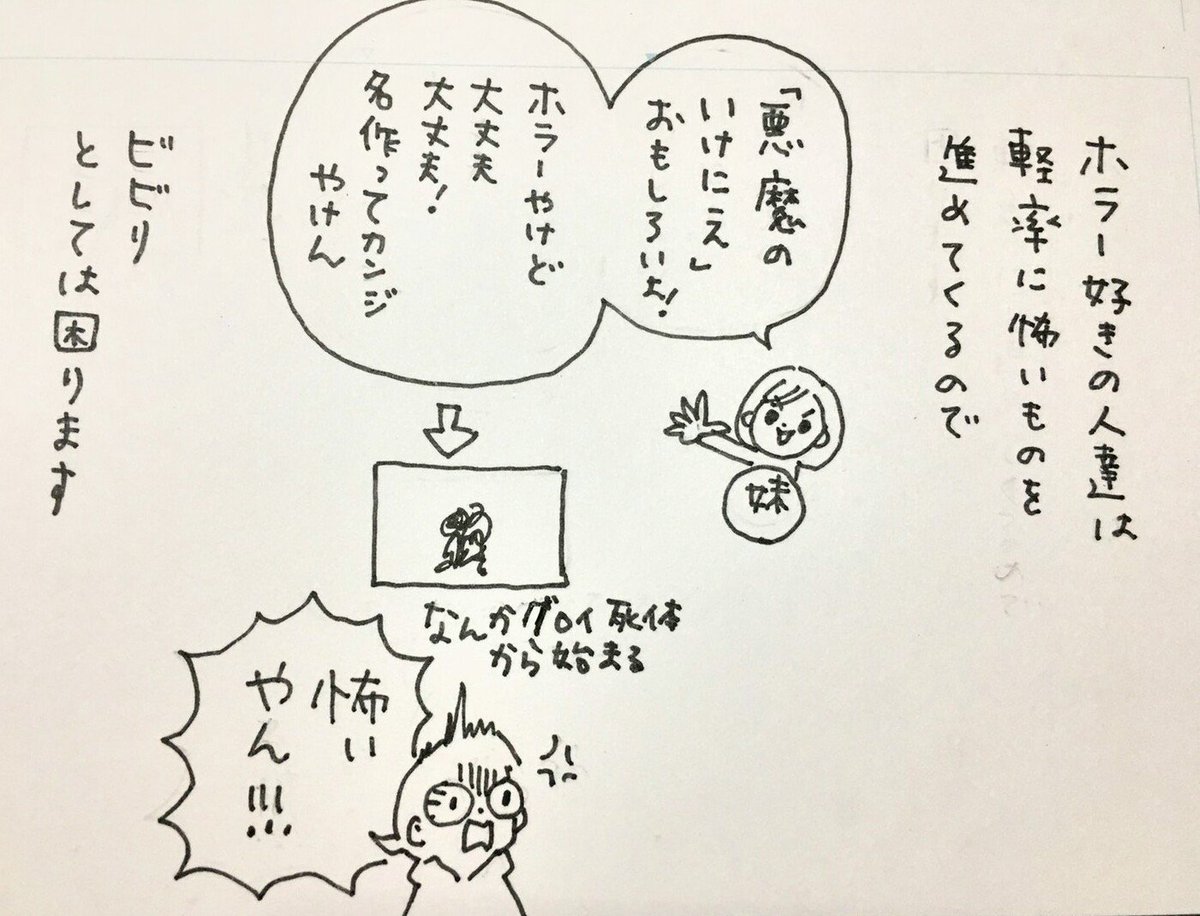 ホラー好きの人達は
軽率に怖いものを
進めてくるので
「悪魔の
いけにえ」
おもしろいよ!
ホラーやけど
大丈夫
大丈夫!
名作ってカンジ
やけん
妹
なんかグロイ死体
から始まる
怖い
やん!!!
ビビリ
としては困ります